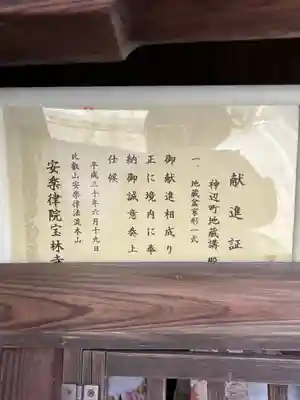 献進証
神辺町地蔵講 殿
一、地蔵盆家形一式
御献進相成り
正に境内に奉
納御誠意奏上
仕候
平成三十年六月十九日
比叡山安楽律法流本山
安楽律院宝林寺